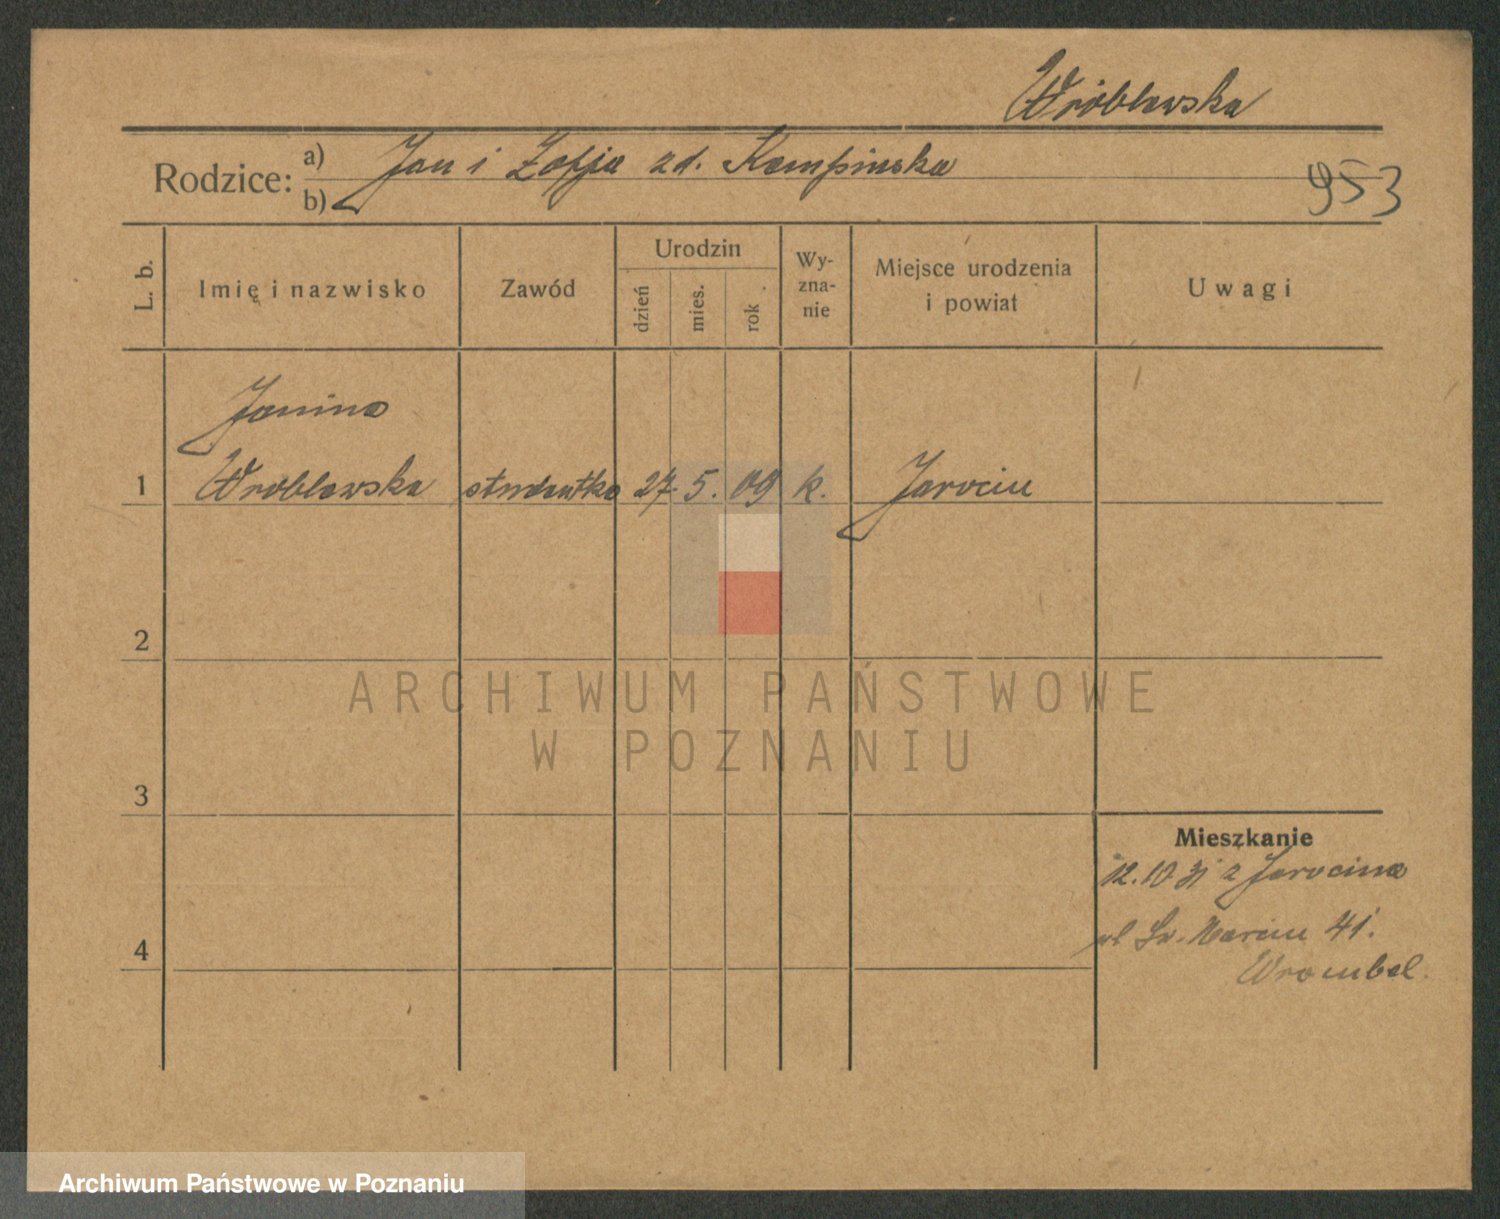 Wróblewska
Rodzice: a) Jan i Zofja zd. Kempinska
b)
953
L. b.
Imię i nazwisko
Zawód
Urodzin
dzień
mies.
rok
Wy-
zna-
nie
Miejsce urodzenia
i powiat
Uwagi
Janina
1 Wróblewska studentka 27. 5. 09 k. Jarocin
2
3
4
Mieszkanie
12.10 31 z Jarocina
Św. Marcin 41.
ARCHIWUM PAŃSTWOWE
W POZNANIU
Archiwum Państwowe w Poznaniu